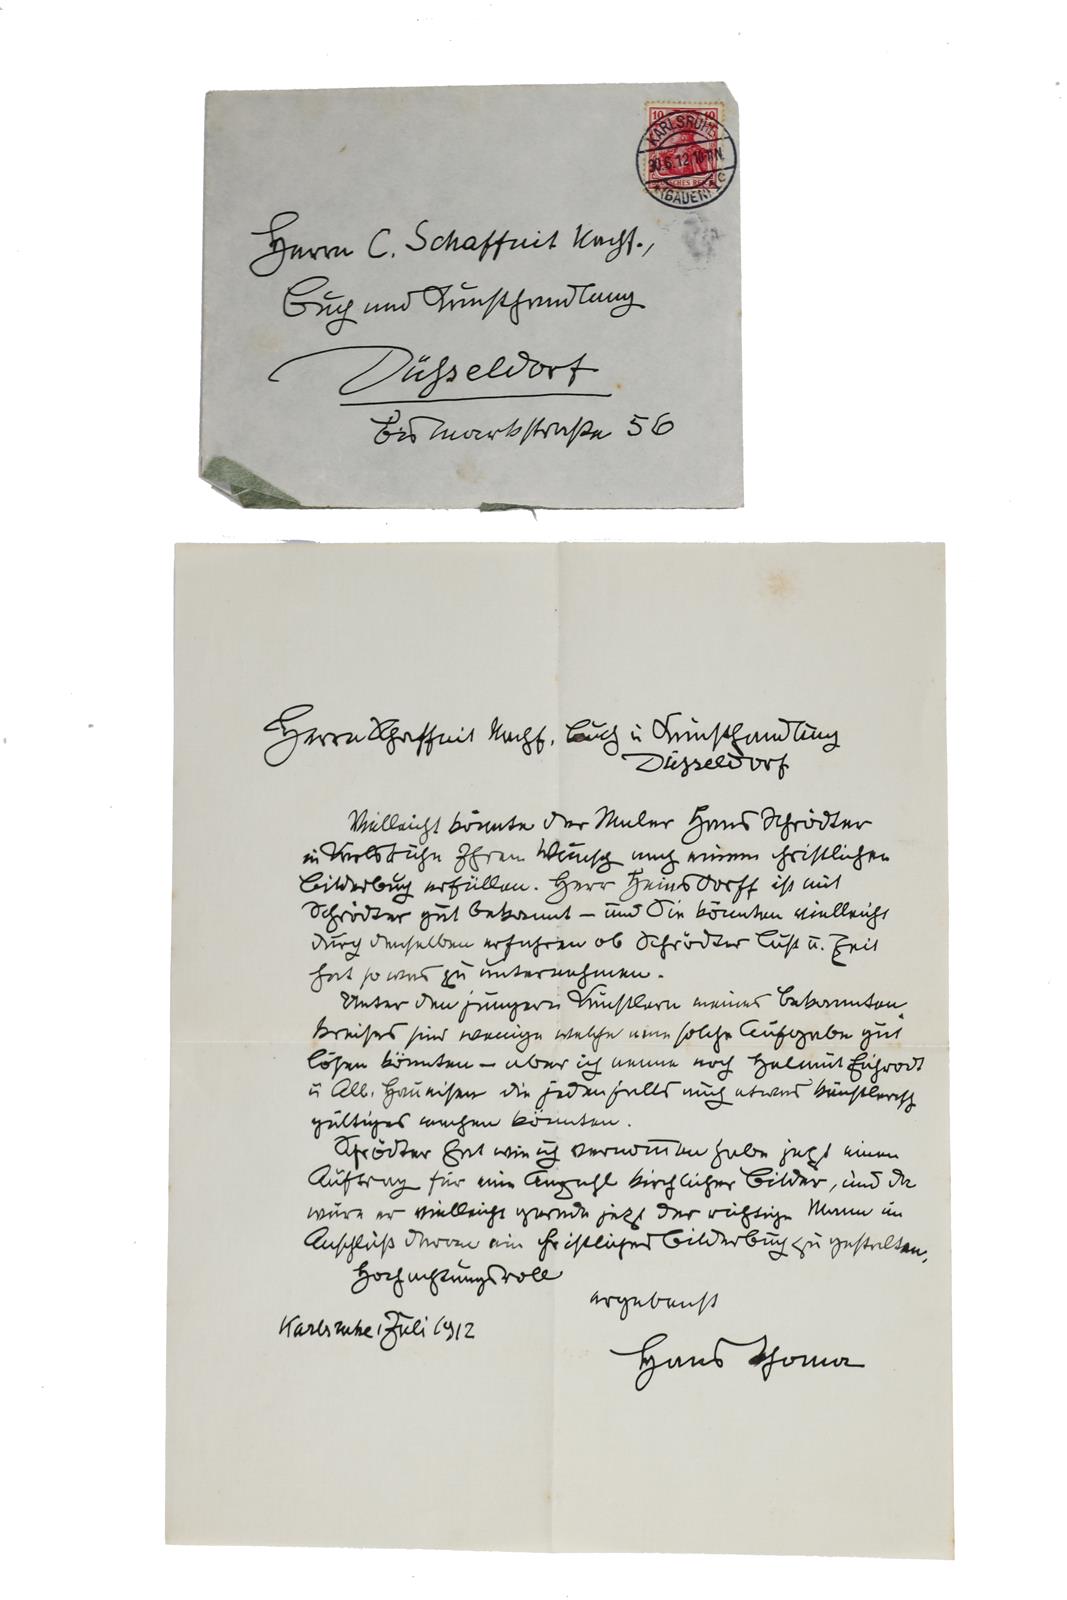 10 10
KARLSRUHE
30.6.12. 10-11 N.
(BADEN) * c
Herrn C. Schaffnit Nachf.,
Buch und Kunsthandlung
Düsseldorf
Bismarkstraße 56
Herrn Schaffnit Nachf. Buch u Kunsthandlung
Düsseldorf
Vielleicht könnte der Maler Hans Schrödter
in Karlsruhe Ihren Wunsch nach einem christlichen
Bilderbuch erfüllen. Herr Heinsdorff ist mit
Schrödter gut bekannt – und Sie könnten vielleicht
durch denselben erfahren ob Schrödter Lust u. Zeit
hat so was zu unternehmen.
Unter den jüngern Künstlern meines Bekannten
kreises sind wenige welche eine solche Aufgabe gut
lösen könnten – aber ich nenne noch Helmut Eichrodt
u Alb. Haueisen die jedenfalls auch etwas künstlerisch
gültiges machen könnten.
Schrödter hat wie ich vernommen habe jetzt einen
Auftrag für eine Anzahl kirchlicher Bilder, und da
wäre er vielleicht gerade jetzt der richtige Mann im
Anschluß daran ein christliches Bilderbuch zu gestalten.
Hochachtungsvoll
ergebenst
Karlsruhe 1 Juli 1912
Hans Thoma